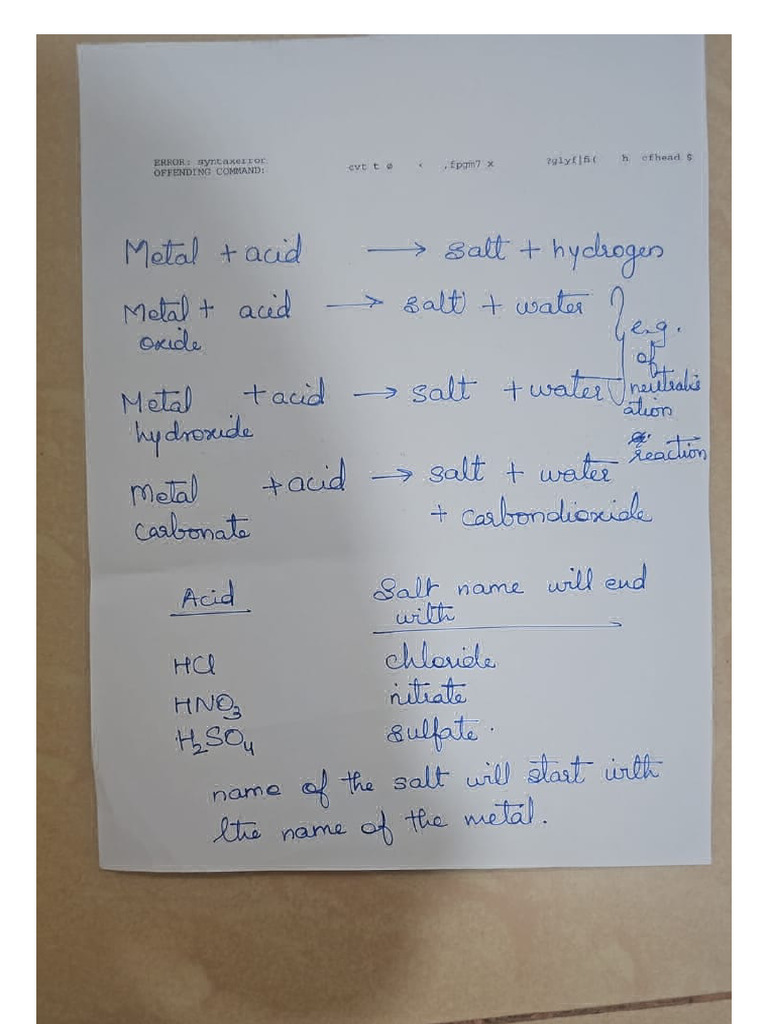 ERROR: syntaxerror
OFFENDING COMMAND:
cvt t ø ‹ .fpgm7 x ?glyf[|fi( h cfhead $
Metal + acid → salt + hydrogen
Metal + acid → salt + water
oxide
Metal + acid → salt + water
hydroxide
e.g.
of
neutralis
ation
reaction
Metal + acid → salt + water
carbonate + carbondioxide
Acid Salt name will end
with
HCl chloride
HNO₃ nitrate
H₂SO₄ sulfate.
name of the salt will start with
the name of the metal.